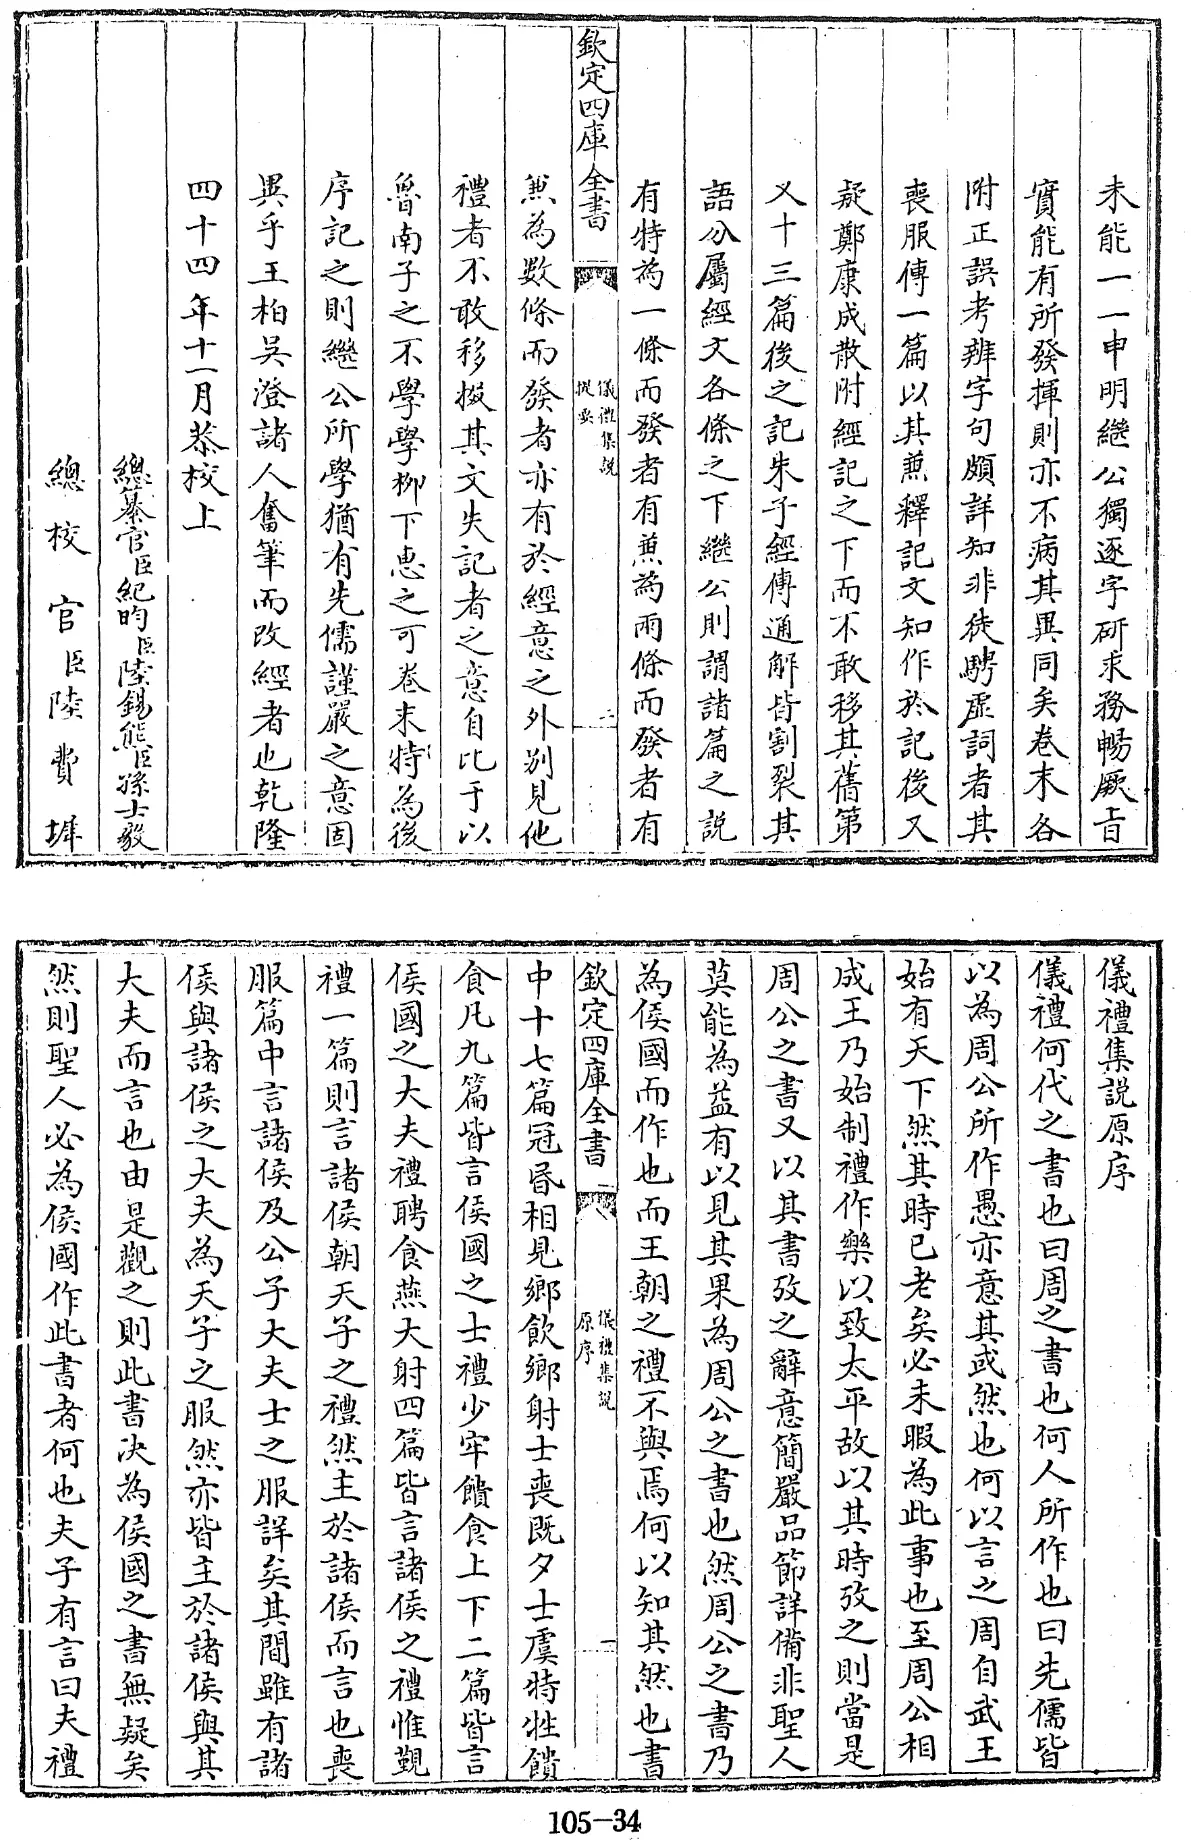 未能一一申明繼公獨逐字研求務暢厥旨
實能有所發揮則亦不病其異同矣卷末各
附正誤考辨字句頗詳知非徒騁虛詞者其
喪服傳一篇以其兼釋記文知作於記後又
疑鄭康成散附經記之下而不敢移其舊第
又十三篇後之記朱子經傳通解皆割裂其
語分屬經文各條之下繼公則謂諸篇之説
有特為一條而發者有兼為兩條而發者有
欽定四庫全書
儀禮集說
提要
二
兼為數條而發者亦有於經意之外別見他
禮者不敢移掇其文失記者之意自比于以
魯南子之不學學柳下惠之可卷末特為後
序記之則繼公所學猶有先儒謹嚴之意固
異乎王柏吳澄諸人奮筆而改經者也乾隆
四十四年十一月恭校上
總纂官臣紀昀臣陸錫熊臣孫士毅
總校官臣陸費墀
儀禮集說原序
儀禮何代之書也曰周之書也何人所作也曰先儒皆
以為周公所作愚亦意其或然也何以言之周自武王
始有天下然其時已老矣必未暇為此事也至周公相
成王乃始制禮作樂以致太平故以其時攷之則當是
周公之書又以其書攷之辭意簡嚴品節詳備非聖人
莫能為益有以見其果為周公之書也然周公之書乃
為侯國而作也而王朝之禮不與焉何以知其然也書
欽定四庫全書
儀禮集說
原序
一
中十七篇冠昏相見鄉飲鄉射士喪既夕士虞特牲饋
食凡九篇皆言侯國之士禮少牢饋食上下二篇皆言
侯國之大夫禮聘食燕大射四篇皆言諸侯之禮惟覲
禮一篇則言諸侯朝天子之禮然主於諸侯而言也喪
服篇中言諸侯及公子大夫士之服詳矣其間雖有諸
侯與諸侯之大夫為天子之服然亦皆主於諸侯與其
大夫而言也由是觀之則此書決為侯國之書無疑矣
然則聖人必為侯國作此書者何也夫子有言曰夫禮
105-34